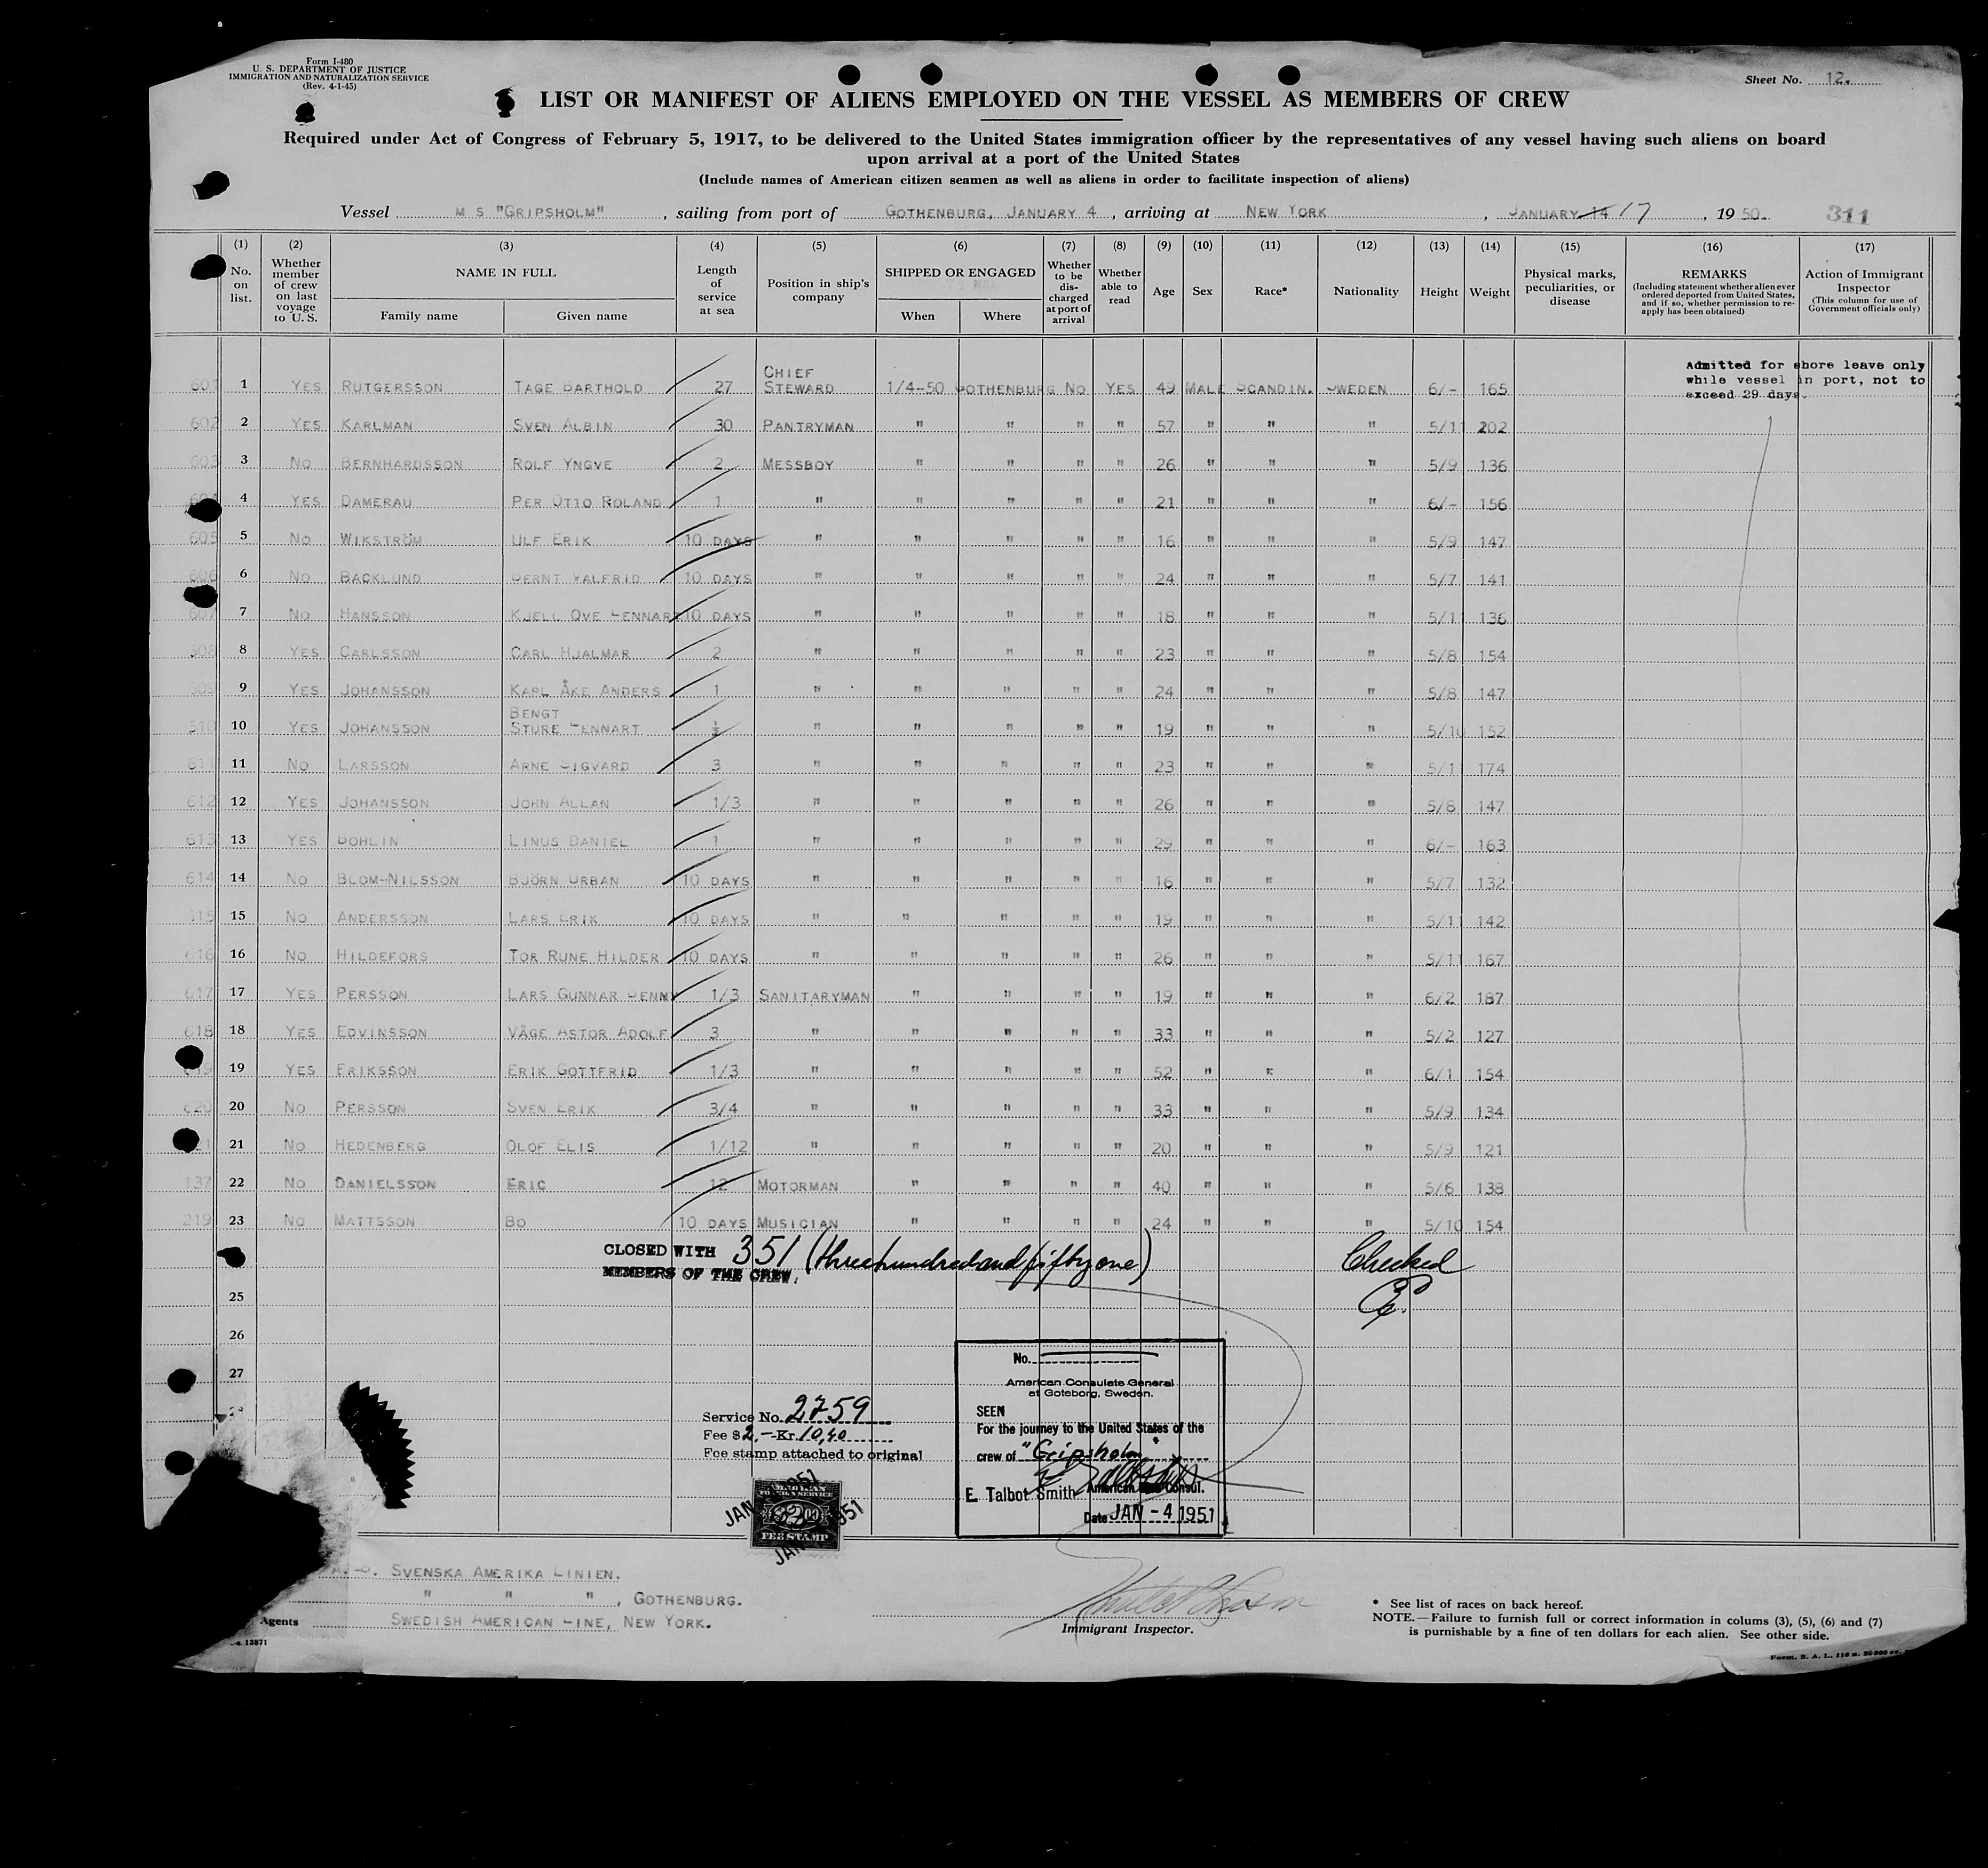 Form I-480
U. S. DEPARTMENT OF JUSTICE
IMMIGRATION AND NATURALIZATION SERVICE
(Rev. 4-1-45)
Sheet No. 12.
LIST OR MANIFEST OF ALIENS EMPLOYED ON THE VESSEL AS MEMBERS OF CREW
Required under Act of Congress of February 5, 1917, to be delivered to the United States immigration officer by the representatives of any vessel having such aliens on board
upon arrival at a port of the United States
(Include names of American citizen seamen as well as aliens in order to facilitate inspection of aliens)
Vessel M S "GRIPSHOLM", sailing from port of GOTHENBURG, JANUARY 4, arriving at NEW YORK, JANUARY 14 17, 19 50. 311
(1) (2) (3) (4) (5) (6) (7) (8) (9) (10) (11) (12) (13) (14) (15) (16) (17)
No. on list.
Whether member of crew on last voyage to U. S.
NAME IN FULL
Family name Given name
Length of service at sea
Position in ship's company
SHIPPED OR ENGAGED
When Where
Whether to be discharged at port of arrival
Whether able to read
Age Sex Race* Nationality Height Weight
Physical marks, peculiarities, or disease
REMARKS
(Including statement whether alien ever ordered deported from United States, and if so, whether permission to reapply has been obtained)
Action of Immigrant Inspector
(This column for use of Government officials only)
Admitted for shore leave only
while vessel in port, not to
exceed 29 days.
601 1 YES RUTGERSSON TAGE BARTHOLD 27 CHIEF STEWARD 1/4-50 GOTHENBURG NO YES 49 MALE SCANDIN. SWEDEN 6/- 165
602 2 YES KARLMAN SVEN ALBIN 30 PANTRYMAN " " " " 57 " " " 5/11 202
603 3 NO BERNHARDSSON ROLF YNGVE 2 MESSBOY " " " " 26 " " " 5/9 136
4 YES DAMERAU PER OTTO ROLAND 1 " " " " " 21 " " " 6/- 156
605 5 NO WIKSTRÖM ULF ERIK 10 DAYS " " " " " 16 " " " 5/9 147
606 6 NO BACKLUND BERNT VALFRID 10 DAYS " " " " " 24 " " " 5/7 141
607 7 NO HANSSON KJELL OVE LENNART 10 DAYS " " " " " 18 " " " 5/11 136
608 8 YES CARLSSON CARL HJALMAR 2 " " " " " 23 " " " 5/8 154
609 9 YES JOHANSSON KARL ÅKE ANDERS 1 " " " " " 24 " " " 5/8 147
610 10 YES JOHANSSON BENGT STURE LENNART ½ " " " " " 19 " " " 5/10 152
611 11 NO LARSSON ARNE SIGVARD 3 " " " " " 23 " " " 5/11 174
612 12 YES JOHANSSON JOHN ALLAN 1/3 " " " " " 26 " " " 5/8 147
613 13 YES BOHLIN LINUS DANIEL 1 " " " " " 29 " " " 6/- 163
614 14 NO BLOM-NILSSON BJÖRN URBAN 10 DAYS " " " " " 16 " " " 5/7 132
615 15 NO ANDERSSON LARS ERIK 10 DAYS " " " " " 19 " " " 5/11 142
616 16 NO HILDEFORS TOR RUNE HILDER 10 DAYS " " " " " 26 " " " 5/11 167
617 17 YES PERSSON LARS GUNNAR BENNY 1/3 SANITARYMAN " " " " 19 " " " 6/2 187
618 18 YES EDVINSSON VÅGE ASTOR ADOLF 3 " " " " " 33 " " " 5/2 127
19 YES ERIKSSON ERIK GOTTFRID 1/3 " " " " " 52 " " " 6/1 154
620 20 NO PERSSON SVEN ERIK 3/4 " " " " " 33 " " " 5/9 134
21 NO HEDENBERG OLOF ELIS 1/12 " " " " " 20 " " " 5/9 121
137 22 NO DANIELSSON ERIC 12 MOTORMAN " " " " 40 " " " 5/6 138
219 23 NO MATTSSON BO 10 DAYS MUSICIAN " " " " 24 " " " 5/10 154
CLOSED WITH 351 (three hundred and fifty one)
MEMBERS OF THE CREW.
Checked
25
26
27
Service No. 2759
Fee $ 2.- Kr. 10,40
Fee stamp attached to original
No.
American Consulate General
at Goteborg, Sweden.
SEEN
For the journey to the United States of the
crew of "Gripsholm"
E. Talbot Smith American Consul.
Date JAN - 4 1951
AMERICAN
FOREIGN SERVICE
$2.00
FEE STAMP
JAN 1951
A.-B. SVENSKA AMERIKA LINIEN.
" " ", GOTHENBURG.
Agents SWEDISH AMERICAN LINE, NEW YORK.
Immigrant Inspector.
* See list of races on back hereof.
NOTE.—Failure to furnish full or correct information in colums (3), (5), (6) and (7)
is purnishable by a fine of ten dollars for each alien. See other side.
13871
Form. S. A. L. 116 n. 20000 ex.